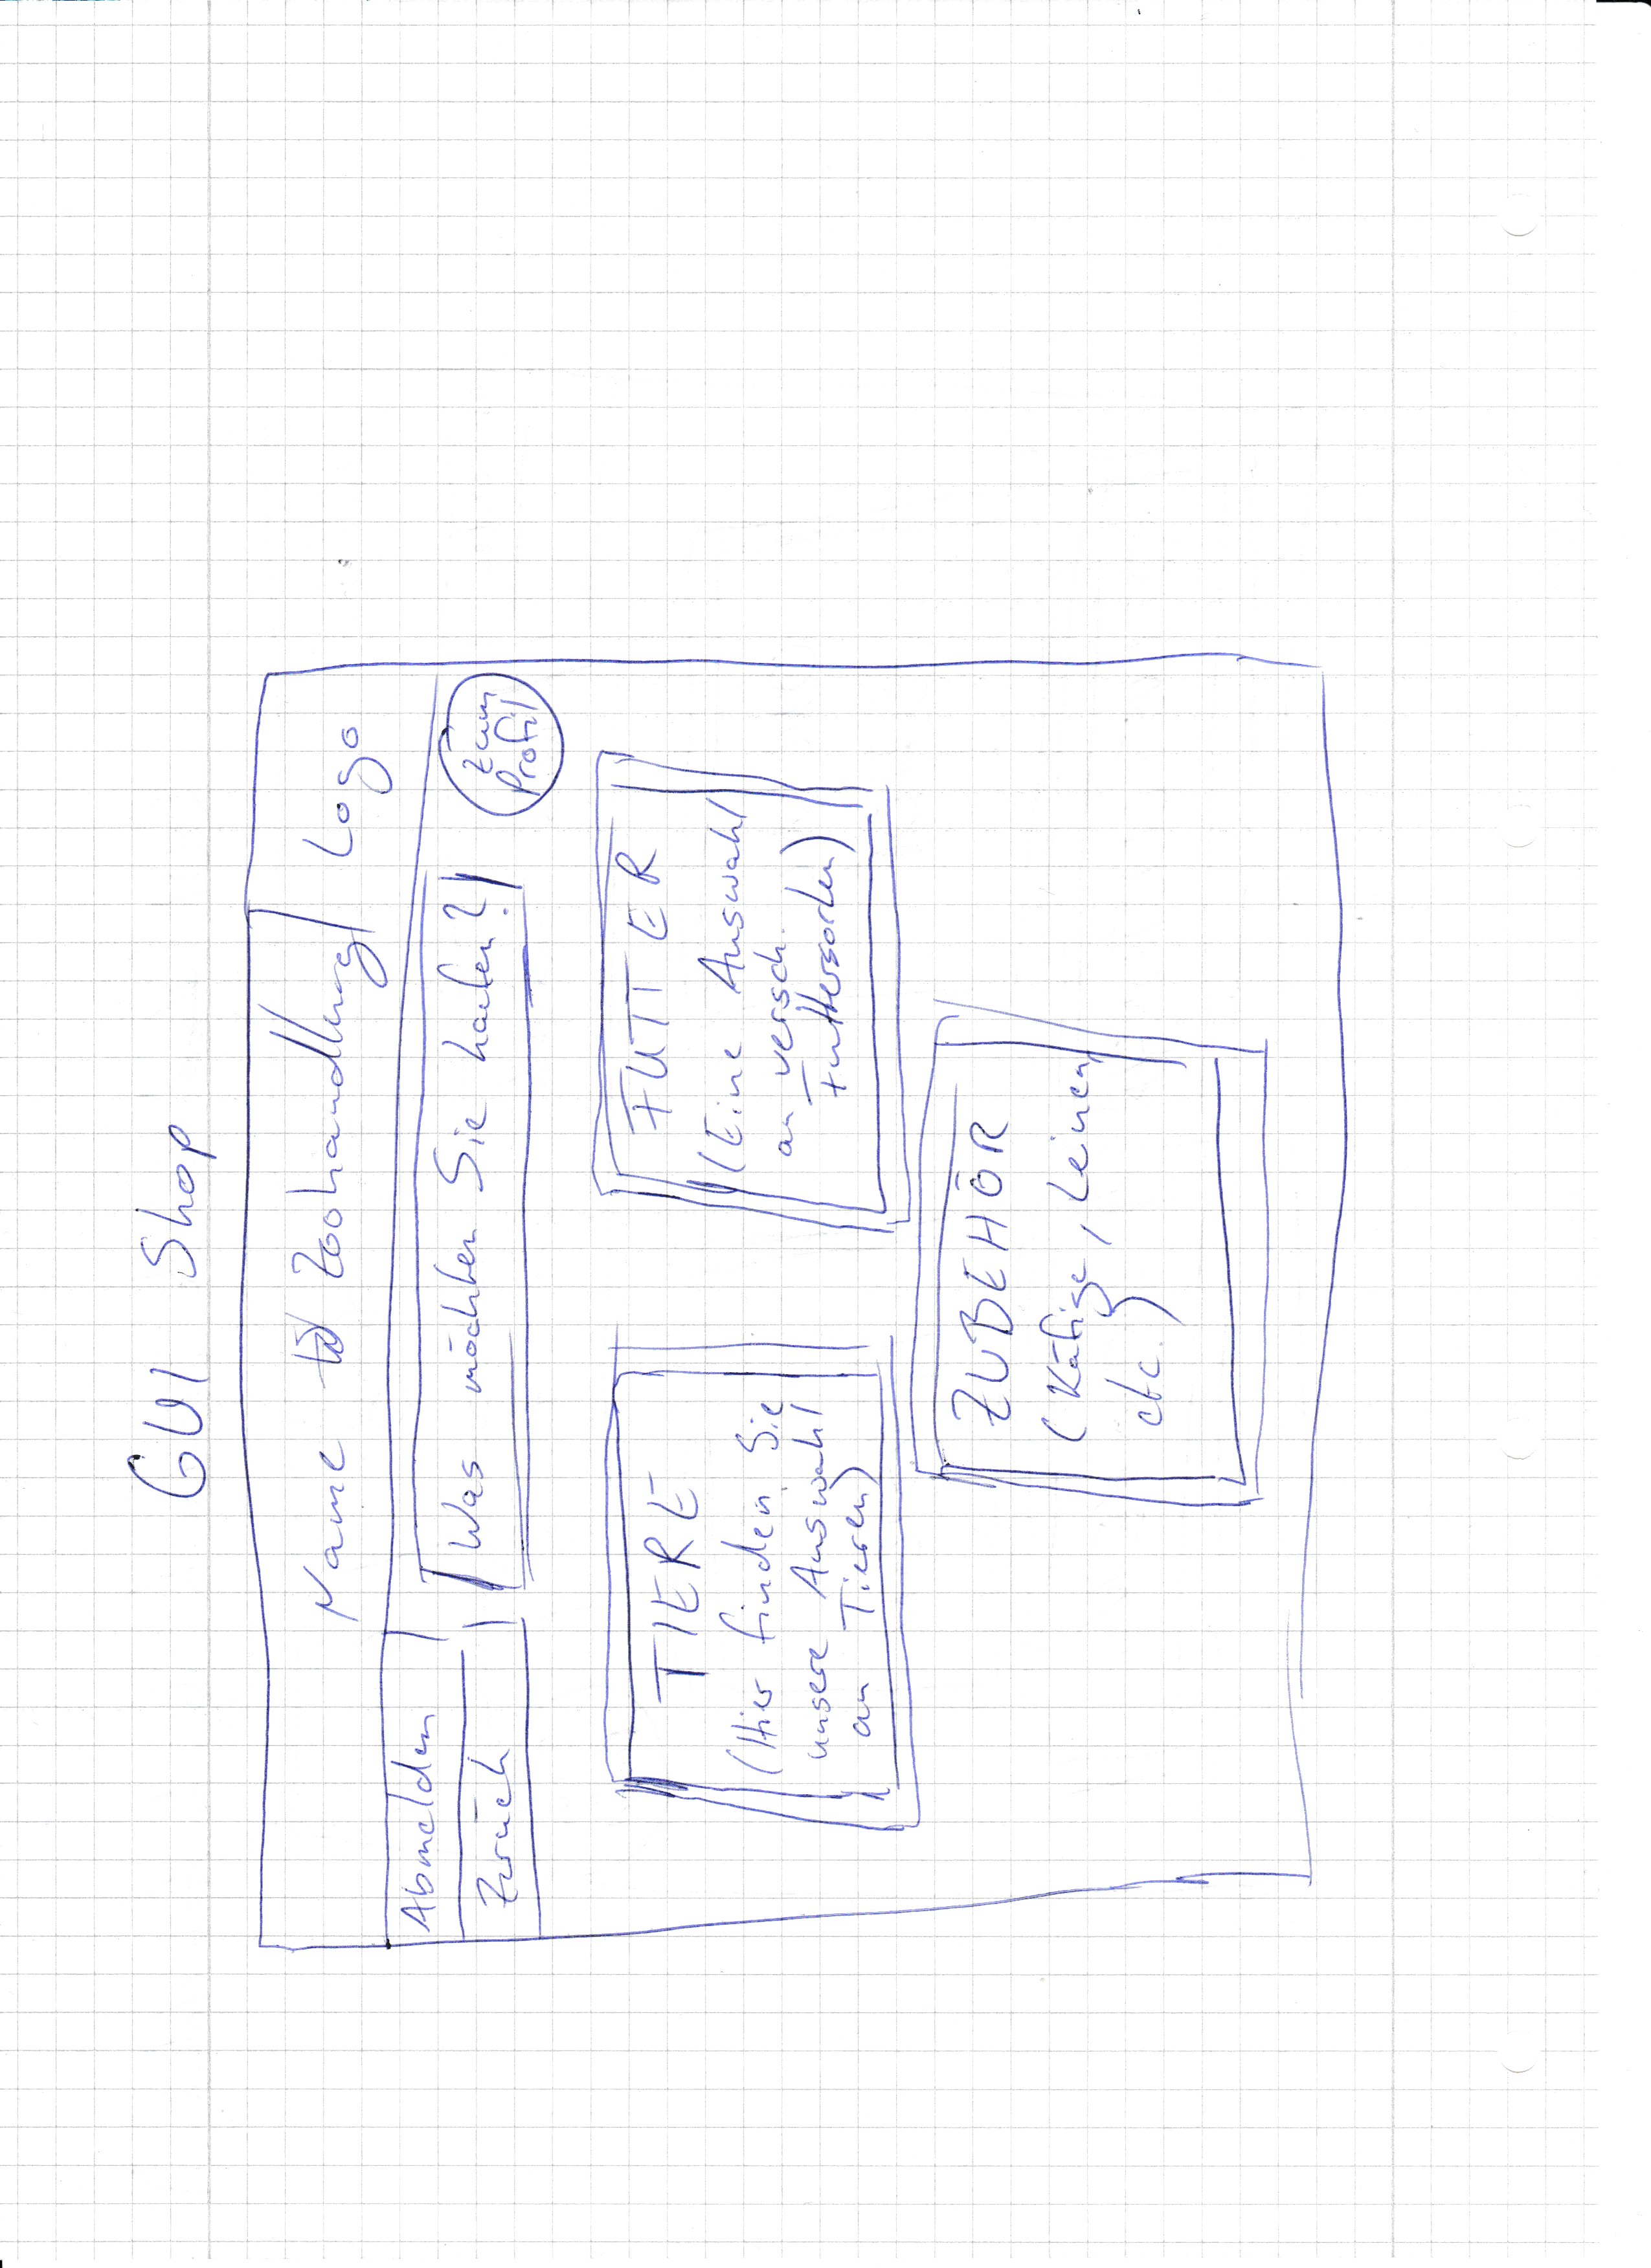 GUI Shop
Name Zoohandlung Logo
Abmelden
Zurück
Was möchten Sie haben?
zum
Profil
TIERE
(Hier finden Sie
unsere Auswahl
an Tieren)
FUTTER
(Eine Auswahl
an versch.
Futtersorten)
ZUBEHÖR
(Käfige, Leinen,
etc.)